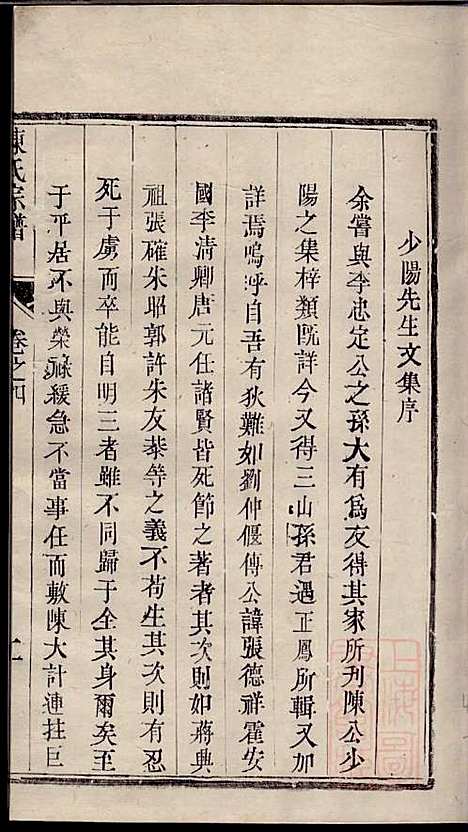 少陽先生文集序
余嘗與李忠定公之孫大有爲友得其家所刊陳公少
陽之集梓類旣詳今又得三山孫君遇正鳳所輯又加
詳焉嗚乎自吾有狄難如劉仲偃傅公諱張德祥霍安
國李清卿唐元任諸賢皆死節之著者其次則如蔣興
祖張確朱昭郭許朱友恭等之義不苟生其次則有忍
死于虜而卒能自明三者雖不同歸于全其身爾矣至
于平居不與榮祿緩急不當事任而敷陳大計連拄巨
陳氏宗譜
卷之四
二
上海